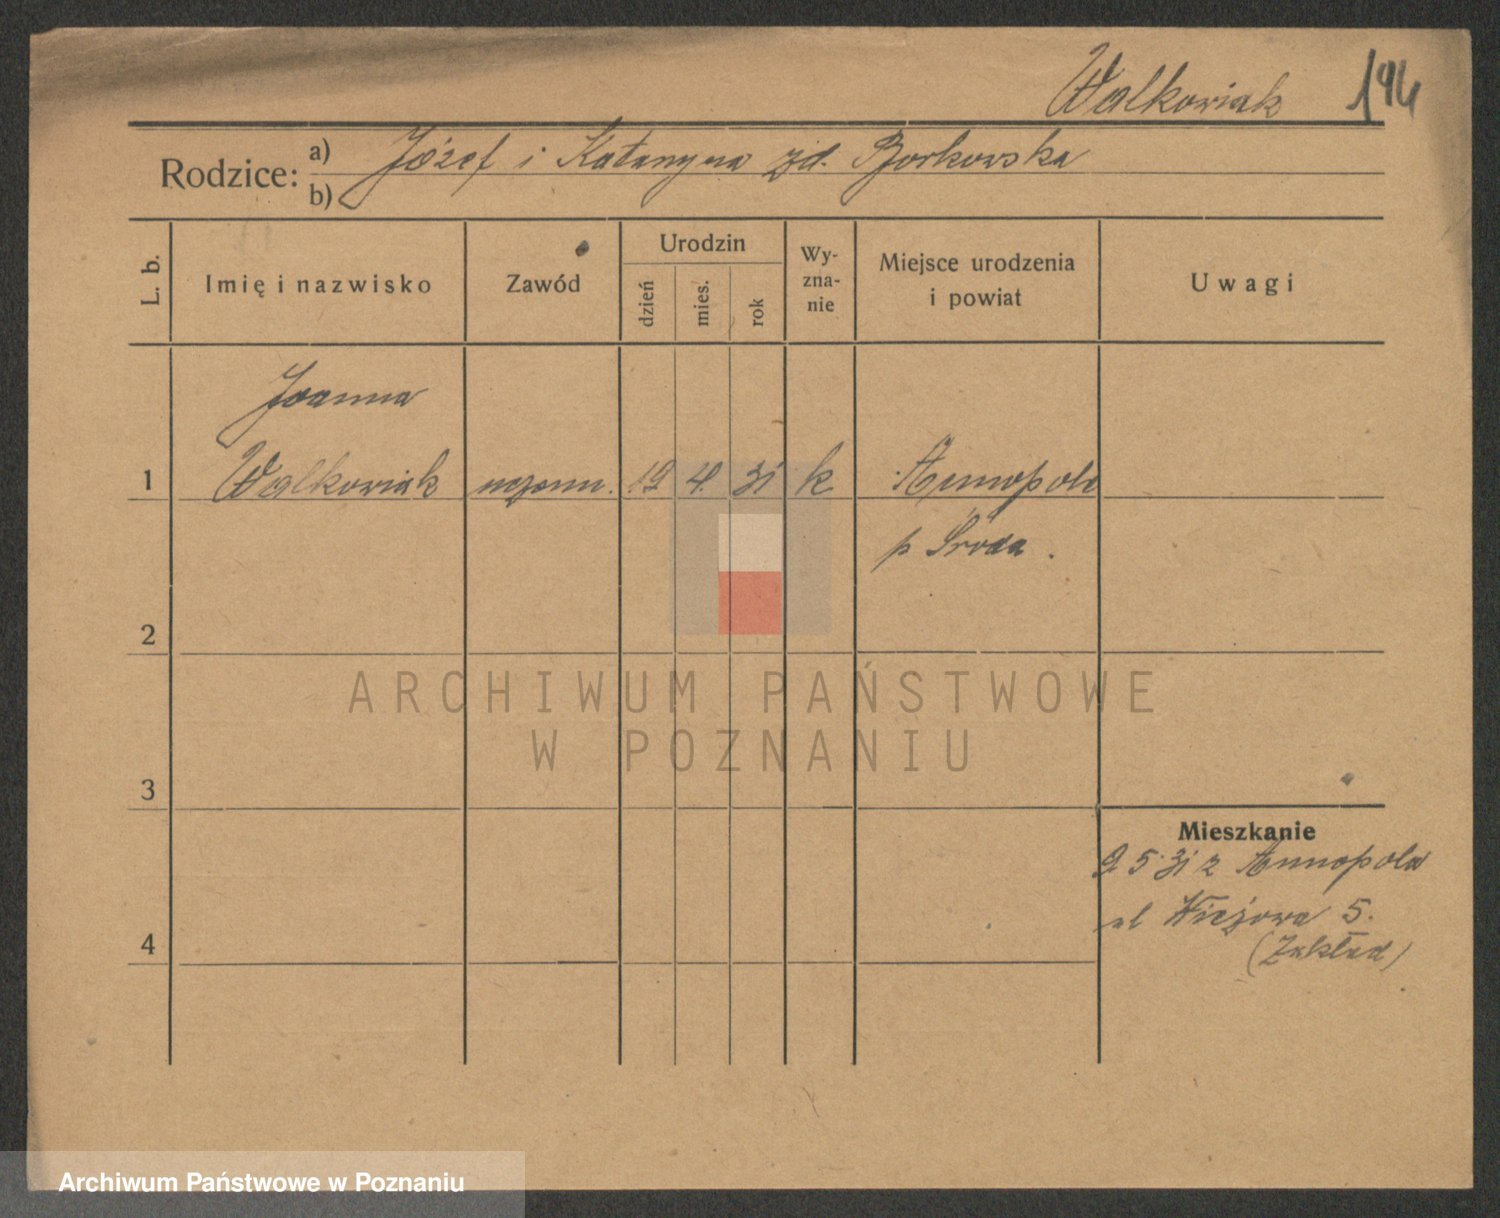 Walkowiak 194
Rodzice: a) Józef i Katarzyna zd. Borkowska
b)
L. b.
Imię i nazwisko
Zawód
Urodzin
dzień
mies.
rok
Wy-
zna-
nie
Miejsce urodzenia
i powiat
Uwagi
Joanna
1 Walkowiak uczenn. 19 4. 31 k Annopole
p Środa.
2
3
4
Mieszkanie
9 5 31 z Annopola
ul Wiejowa 5.
(Zakład)
ARCHIWUM PAŃSTWOWE
W POZNANIU
Archiwum Państwowe w Poznaniu